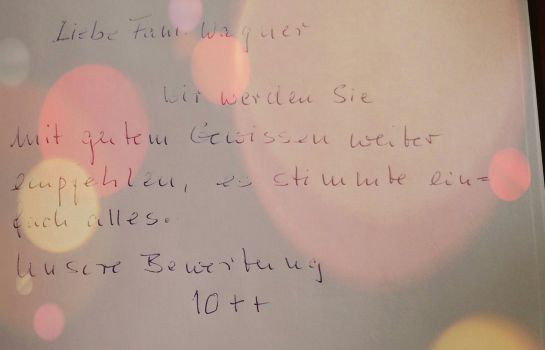 Liebe Fam. Wagner
Wir werden Sie
mit gutem Gewissen weiter
empfehlen, es stimmte ein=
fach alles.
Unsere Bewertung
10++